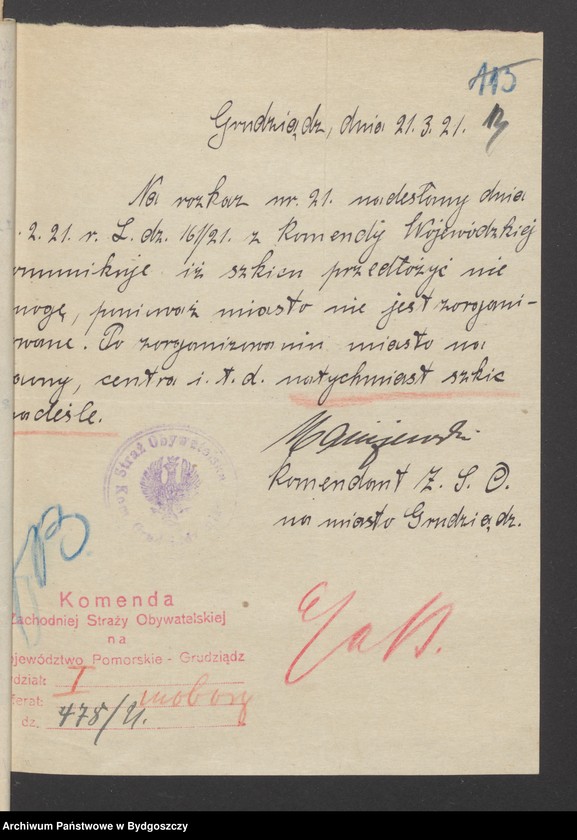 115
Grudziądz, dnia 21.3.21.
Na rozkaz nr. 21. nadesłany dnia
.2.21. r. L. dz. 161/21. z Komendy Wojewódzkiej
omunikuje iż szkicu przedłożyć nie
mogę, ponieważ miasto nie jest zorgani-
wane. Po zorganizowaniu miasto na
centra i.t.d. natychmiast szkic
nadeśle.
Straż Obywatelska
Komendant Z. S. O.
na miasto Grudziądz.
Komenda
Zachodniej Straży Obywatelskiej
na
ojewództwo Pomorskie - Grudziądz
dział: I
ferat:
dz. 478/21.
Archiwum Państwowe w Bydgoszczy